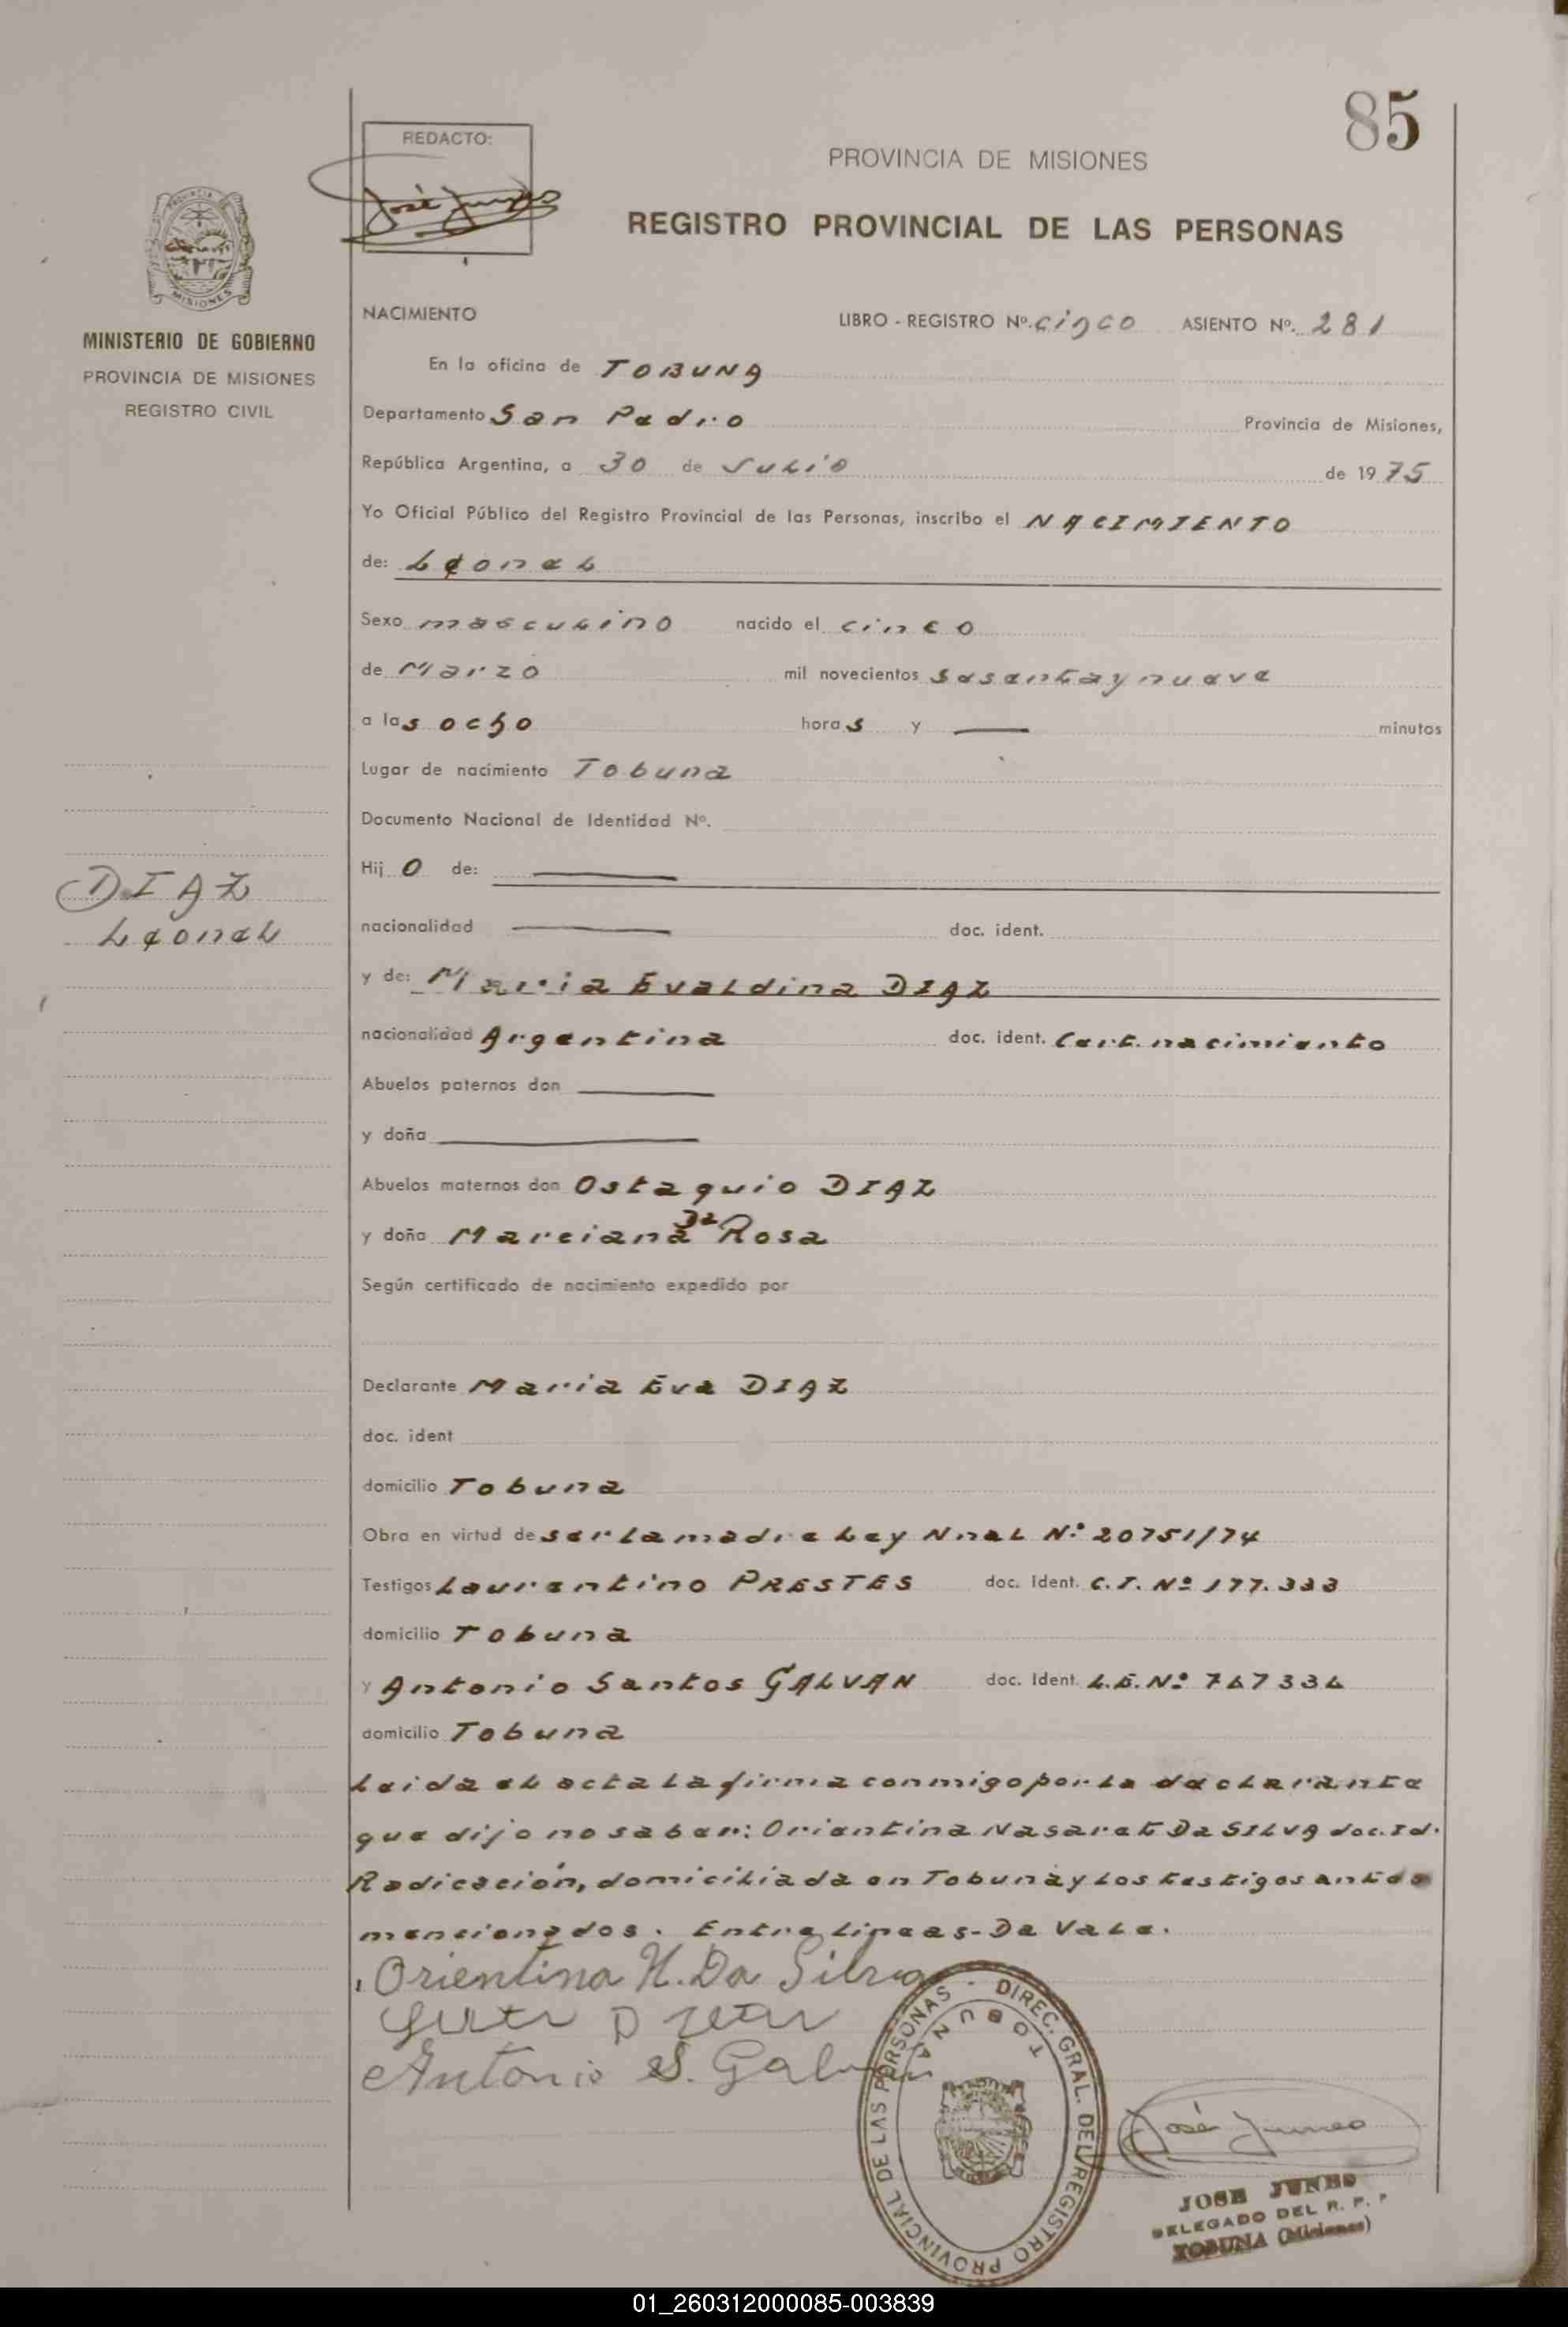 85
REDACTO:
José Juneo
PROVINCIA DE MISIONES
REGISTRO PROVINCIAL DE LAS PERSONAS
PROVINCIA DE
MISIONES
MINISTERIO DE GOBIERNO
PROVINCIA DE MISIONES
REGISTRO CIVIL
NACIMIENTO
LIBRO - REGISTRO Nº. cinco ASIENTO Nº. 281
En la oficina de TOBUNA
Departamento San Pedro Provincia de Misiones,
República Argentina, a 30 de Julio de 1975
Yo Oficial Público del Registro Provincial de las Personas, inscribo el NACIMIENTO
de: Leonel
Sexo masculino nacido el cinco
de Marzo mil novecientos sesentaynueve
a las ocho horas y — minutos
Lugar de nacimiento Tobuna
Documento Nacional de Identidad Nº.
Hijo de: —
DIAZ
Leonel
nacionalidad — doc. ident.
y de: Maria Evaldina DIAZ
nacionalidad Argentina doc. ident. Cert. nacimiento
Abuelos paternos don —
y doña —
Abuelos maternos don Ostaquio DIAZ
y doña Marciana Da Rosa
Según certificado de nacimiento expedido por
Declarante Maria Eva DIAZ
doc. ident
domicilio Tobuna
Obra en virtud de ser la madre Ley Nnal Nº 20751/74
Testigos Laurentino PRESTES doc. Ident. C.I. Nº 177.333
domicilio Tobuna
y Antonio Santos GALVAN doc. Ident. L.E. Nº
domicilio Tobuna
Leida el acta la firma conmigo por la declarante
que dijo no saber: Orientina Nasaret Da SILVA doc. Id.
Radicación, domiciliada en Tobuna y los testigos antes
mencionados. Entre lineas-Da Vale.
Orientina N. Da Silva
Antonio S. Galvan
DIREC. GRAL. DEL REGISTRO PROVINCIAL DE LAS PERSONAS -
TOBUNA
José Juneo
JOSE JUNEO
DELEGADO DEL R. P. P
TOBUNA (Misiones)
01_260312000085-003839